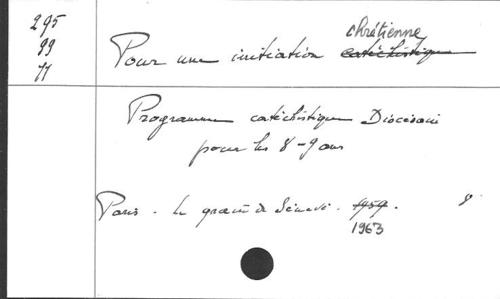 295
99
11
chrétienne
Pour une initiation catéchistique
Programme catéchistique Diocésain
pour les 8-9 ans
Paris - Le grain de Sénevé - 1959.
1963
8°